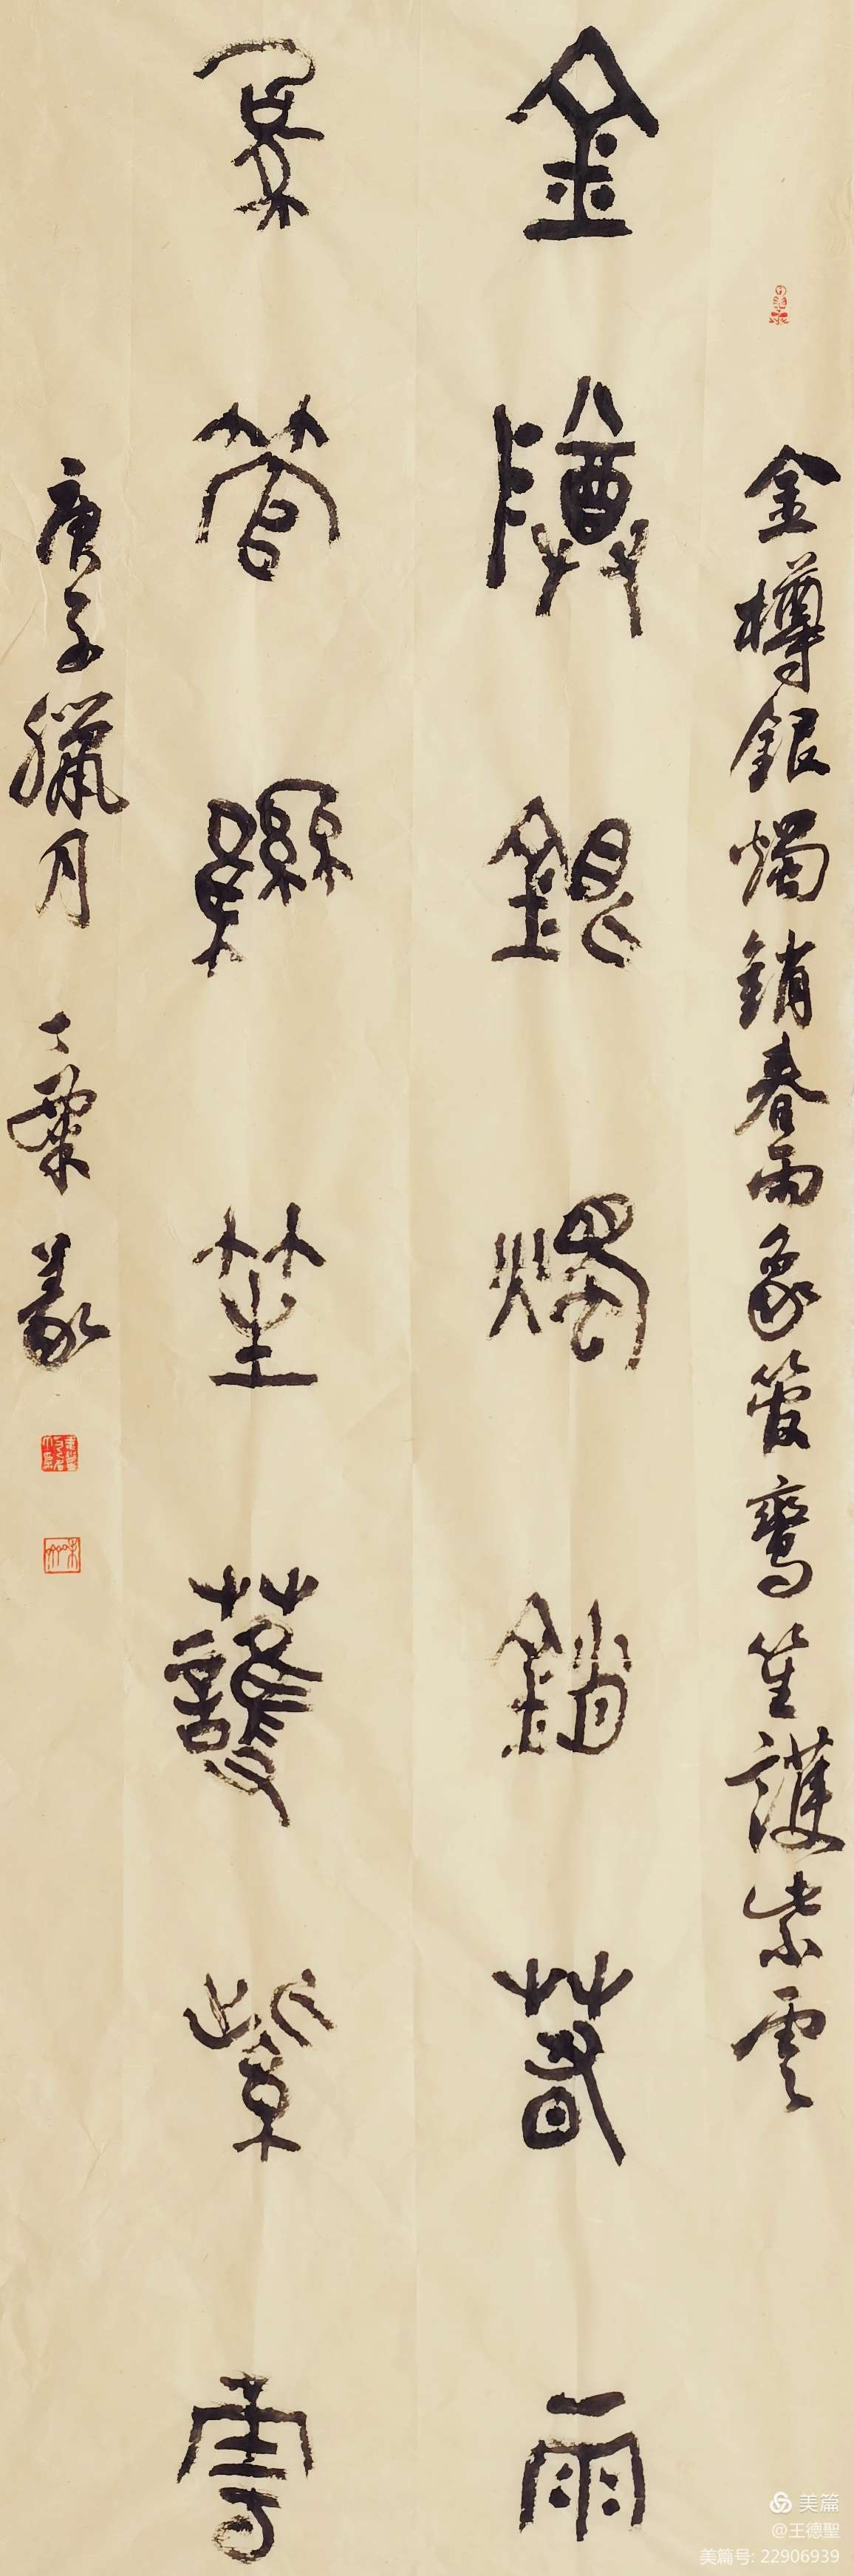 金樽銀燭銷春雨象管鸞笙護紫雲
金樽銀燭銷春雨
象管鸞笙護紫雲
庚子臘月
美篇
@王德聖
美篇号: 22906939